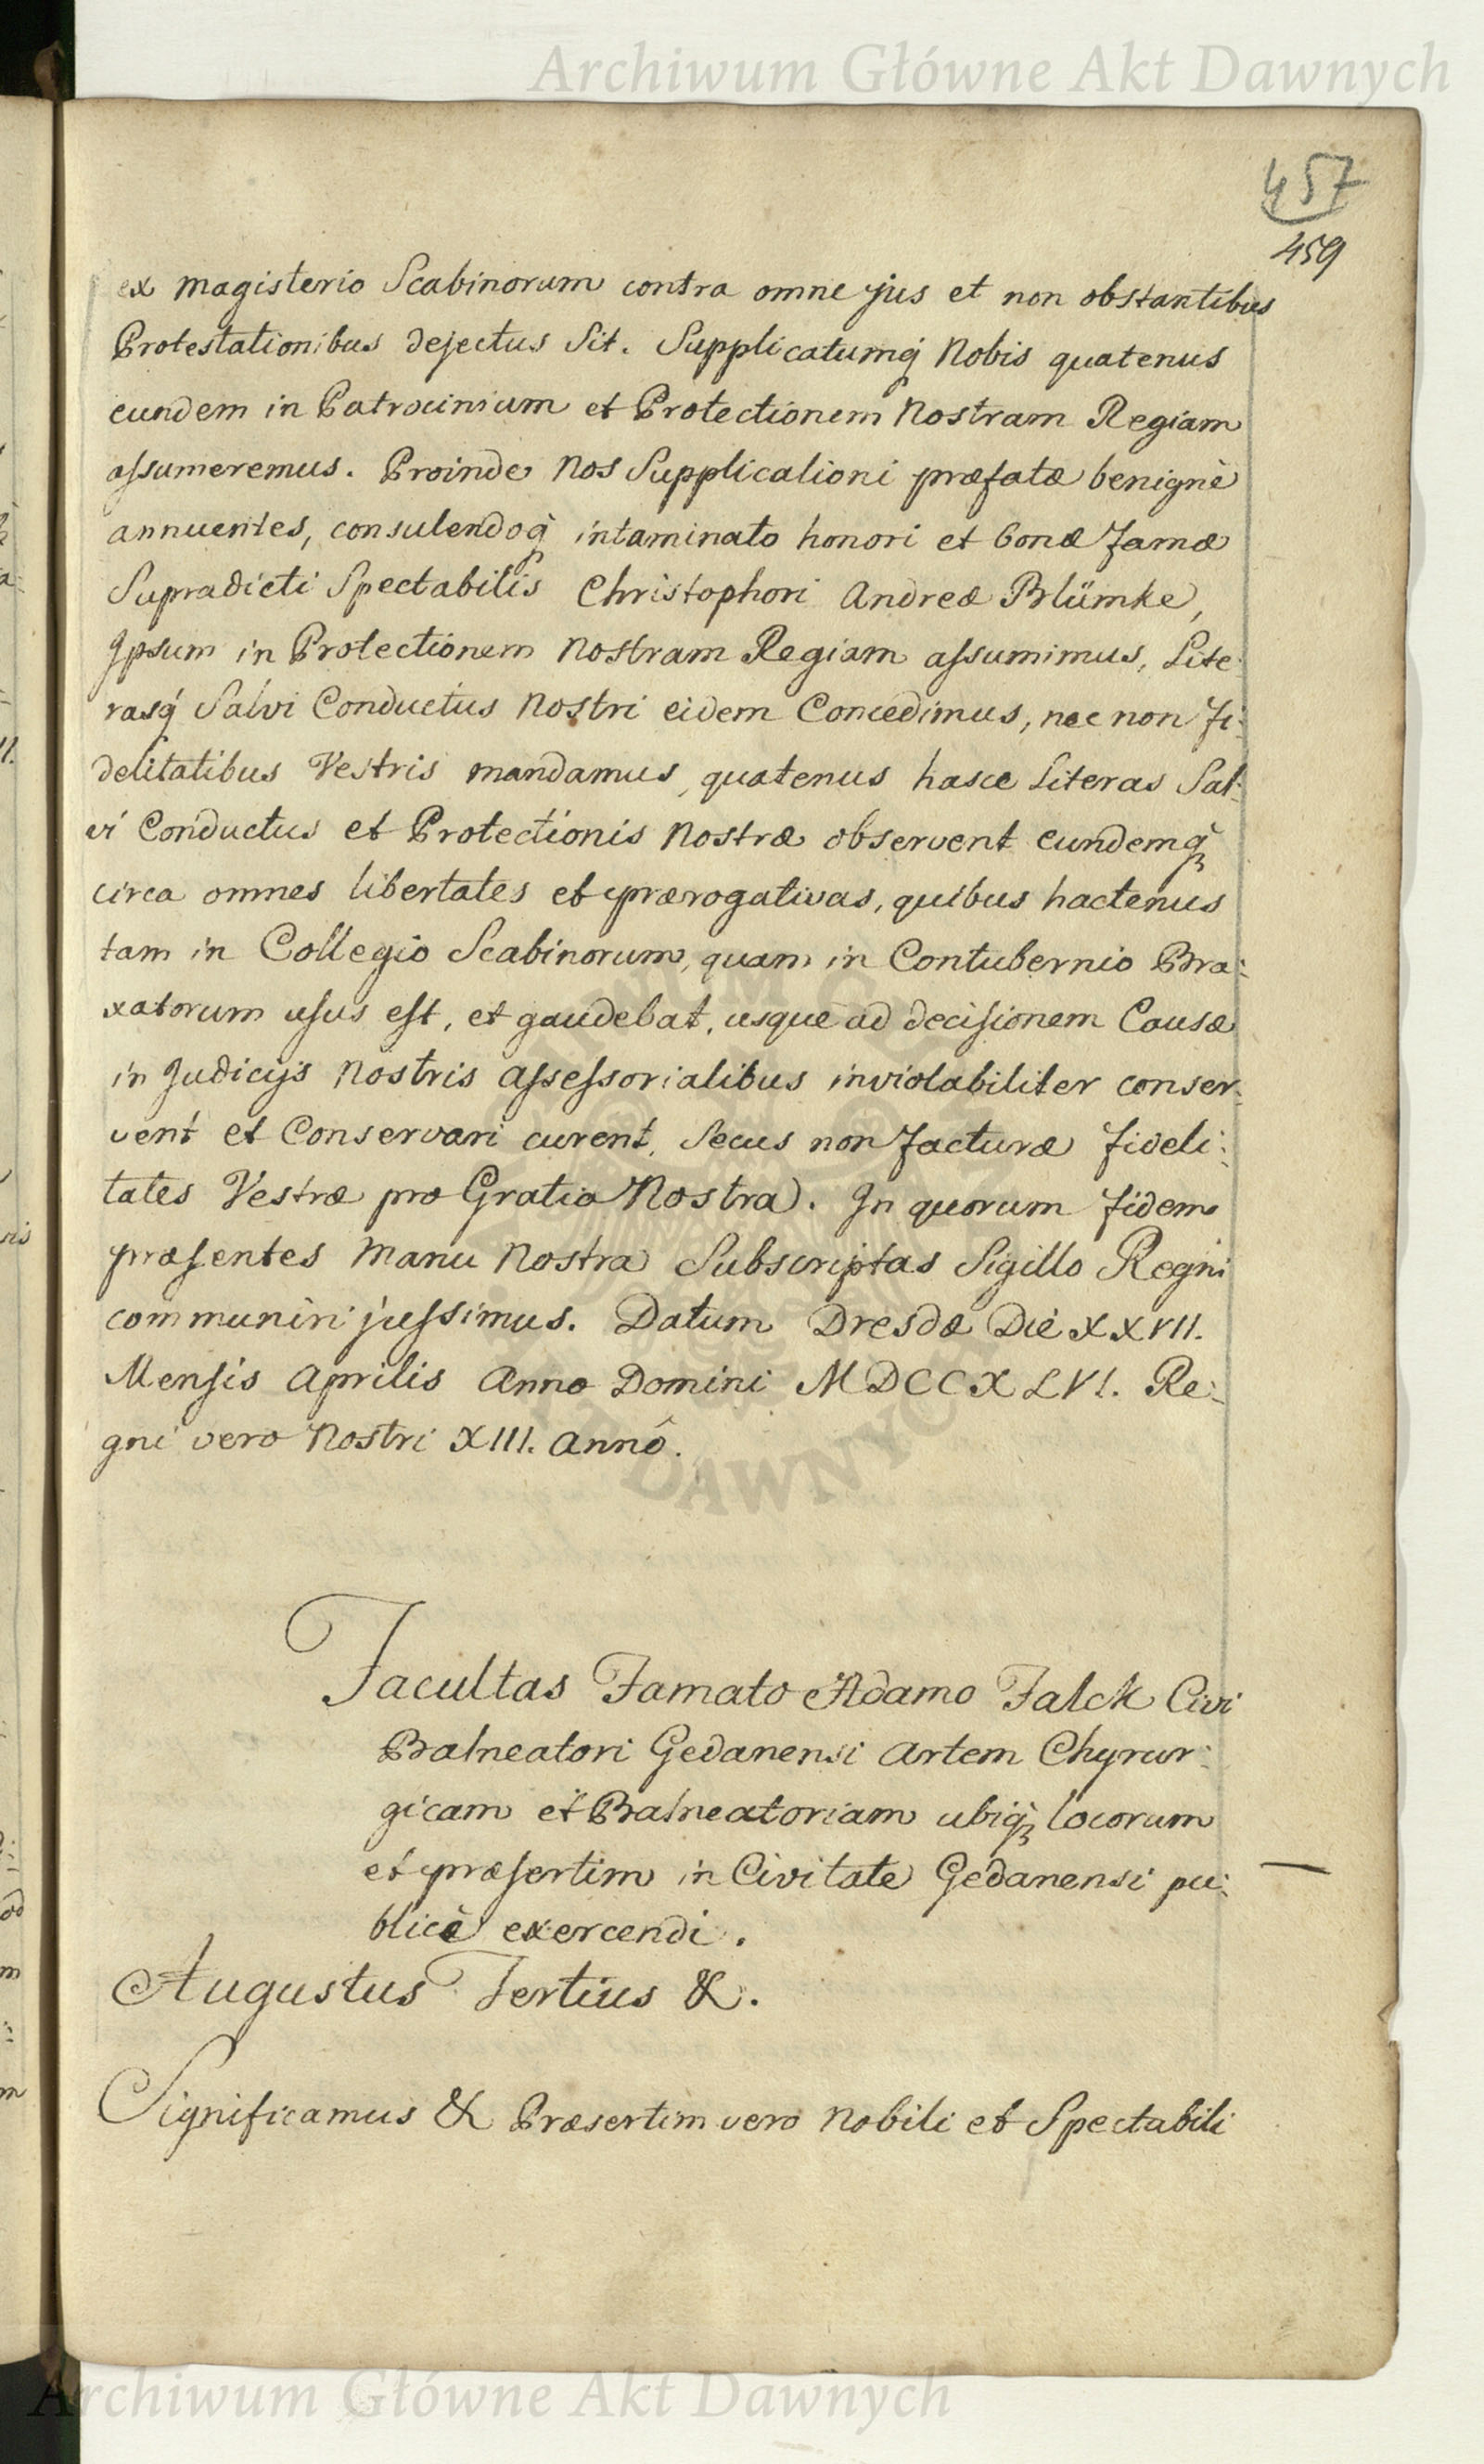 Archiwum Główne Akt Dawnych
457
459
ex Magisterio Scabinorum contra omne jus et non obstantibus
Protestationibus dejectus sit. Supplicatumq́ Nobis quatenus
eundem in Patrocinium et Protectionem Nostram Regiam
aſsumeremus. Proinde Nos Supplicationi præfatæ benignè
annuentes, consulendoq́ intaminato honori et bonæ famæ
Supradicti Spectabilis Christophori Andreæ Blümke,
Ipsum in Protectionem Nostram Regiam aſsumimus, Lite:
rasq́ Salvi Conductus Nostri eidem Concedimus, nec non Fi:
delitatibus Vestris mandamus, quatenus hasce Literas Sal:
vi Conductus et Protectionis Nostræ observent eundemq́
circa omnes libertates et prærogativas, quibus hactenus
tam in Collegio Scabinorum, quam in Contubernio Bra:
xatorum usus eſt, et gaudebat, usque ad deciſionem Causæ
in Judicijs Nostris Aſseſsorialibus inviolabiliter conser:
vent et Conservari curent. Secus non facturæ Fideli:
tates Vestræ pro Gratia Nostra. In quorum fidem
præſentes Manu Nostra Subscriptas Sigillo Regni
communiri juſsimus. Datum Dresdæ Die XXVII.
Mensis Aprilis Anno Domini MDCCXLVI. Re:
gni vero Nostri XIII. Annô.
Facultas Famato Adamo Falck Civi
Balneatori Gedanensi Artem Chyrur:
gicam et Balneatoriam ubiq́ locorum
et præſertim in Civitate Gedanensi pu:
blicè exercendi.
Augustus Tertius &.
Significamus & Præsertim vero Nobili et Spectabili
Archiwum Główne Akt Dawnych